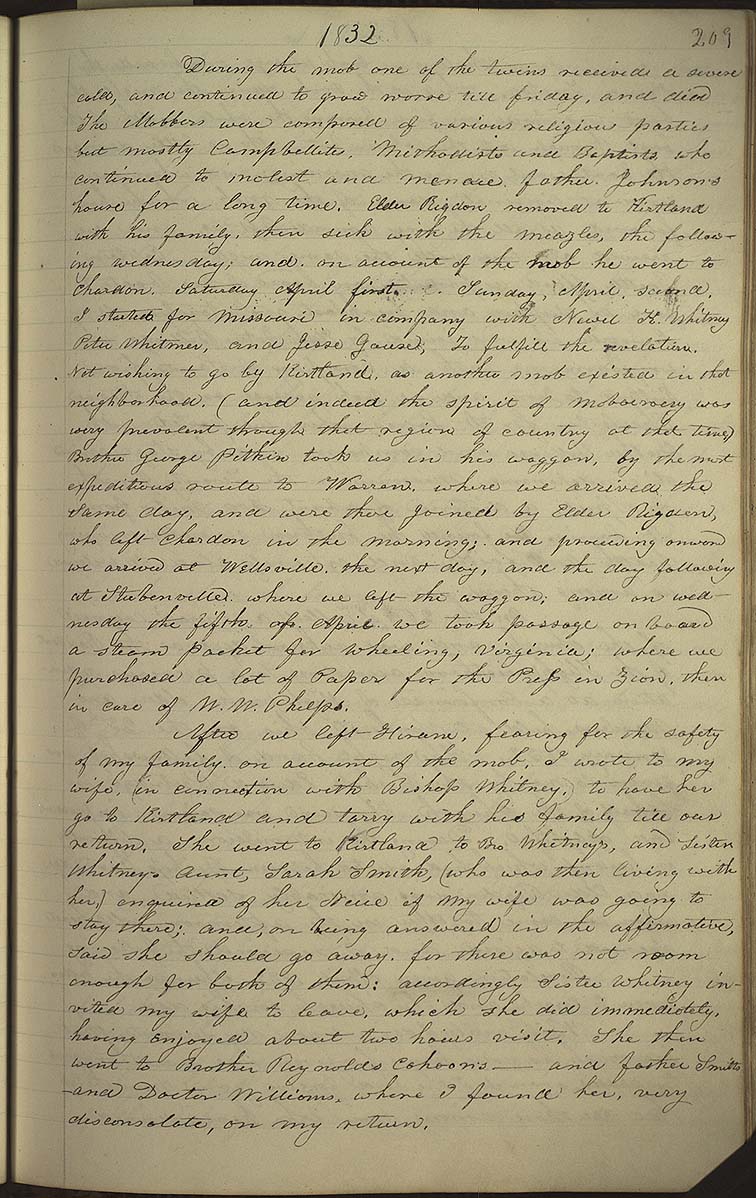 1832
209
During the mob one of the twins received a severe
cold, and continued to grow worse till friday, and died
The Mobbers were composed of various religious parties
but mostly Campbellites, Methodists and Baptists, who
continued to molest and menace father Johnson's
house for a long time. Elder Rigdon removed to Kirtland
with his family, then sick with the measles, the follow-
ing wednesday; and on account of the mob he went to
Chardon, Saturday April first. Sunday, April, second,
I started for Missouri in company with Newel K. Whitney
Peter Whitmer, and Jesse Gause, To fulfill the revelation.
Not wishing to go by Kirtland, as another mob existed in that
neighborhood, (and indeed the spirit of mobocracy was
very prevalent through that region of country at the time)
Brother George Pitkin took us in his waggon, by the most
expeditious route to Warren, where we arrived the
same day, and were there joined by Elder Rigdon,
who left Chardon in the morning; and proceeding onward
we arrived at Wellsville, the next day, and the day following
at Stubenville where we left the waggon; and on wed-
nesday the fifth of April we took passage on board
a steam packet for Wheeling, Virginia; where we
purchased a lot of Paper for the Press in Zion, then
in care of W. W. Phelps.
After we left Hiram, fearing for the safety
of my family on account of the mob, I wrote to my
wife, (in connection with Bishop Whitney,) to have her
go to Kirtland and tarry with his family till our
return. She went to Kirtland to Bro Whitneys, and Sister
Whitneys Aunt, Sarah Smith, (who was then living with
her,) enquired of her Neice if my wife was going to
stay there; and, on being answered in the affirmative,
said she should go away, for there was not room
enough for both of them: accordingly Sister Whitney in-
vited my wife to leave, which she did immediately,
having enjoyed about two hours visit. She then
went to Brother Reynolds Cahoons— and father Smiths
and Doctor Williams, where I found her, very
disconsolate, on my return.